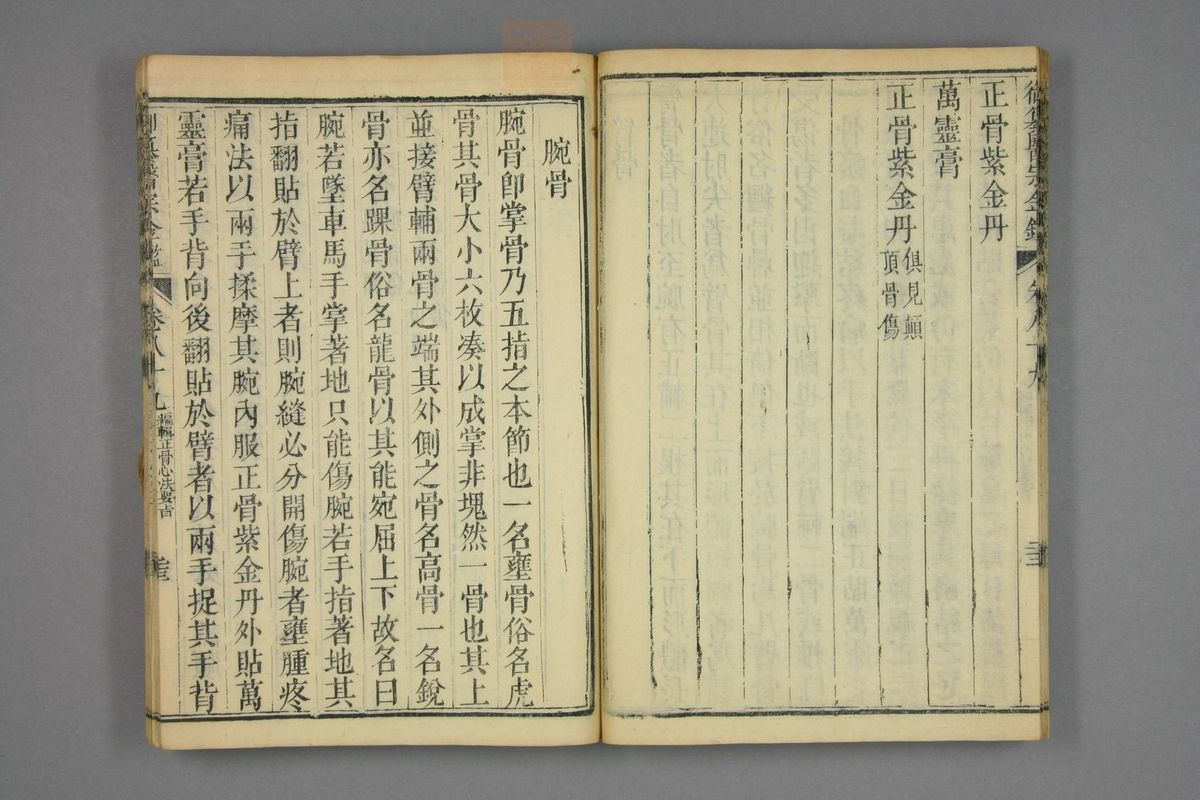 正骨紫金丹
萬靈膏
正骨紫金丹俱見顛頂骨傷
腕骨
腕骨卽掌骨乃五指之本節也一名壅骨俗名虎
骨其骨大小六枚湊以成掌非塊然一骨也其上
並接臂輔兩骨之端其外側之骨名高骨一名銳
骨亦名踝骨俗名龍骨以其能宛屈上下故名曰
腕若墜車馬手掌著地只能傷腕若手指著地其
指翻貼於臂上者則腕縫必分開傷腕者壅腫疼
痛法以兩手揉摩其腕內服正骨紫金丹外貼萬
靈膏若手背向後翻貼於臂者以兩手捉其手背
卷八十九
編輯正骨心法要旨